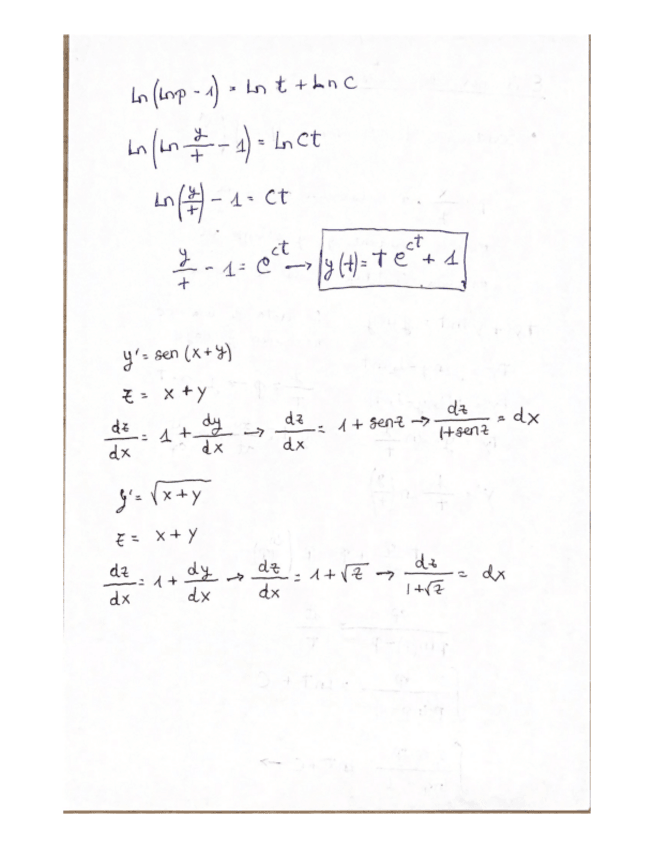 Ln(Lnp - 1) = Ln t + Ln C
Ln(Ln y/t - 1) = Ln Ct
Ln(y/t) - 1 = Ct
y/t - 1 = e^ct → y(t) = t e^ct + 1
y' = sen (x+y)
z = x + y
dz/dx = 1 + dy/dx → dz/dx = 1 + senz → dz/1+senz = dx
y' = √x+y
z = x + y
dz/dx = 1 + dy/dx → dz/dx = 1+√z → dz/1+√z = dx